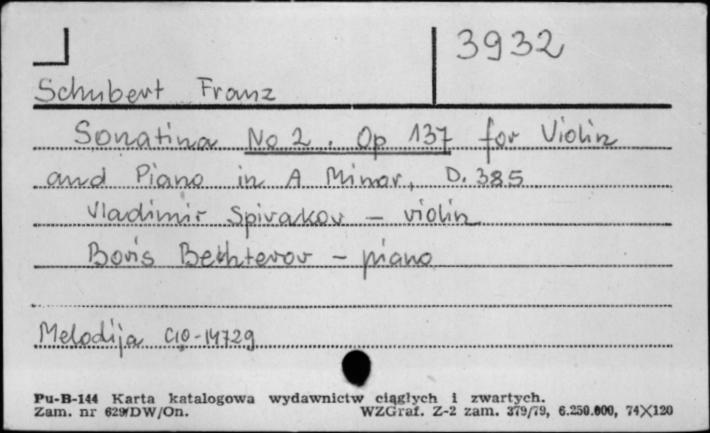 3932
Schubert Franz
Sonatina No 2. Op 137 for Violin
and Piano in A Minor, D. 385
Vladimir Spivakov - violin
Boris Bechterov - piano
Melodija C10-14729
Pu-B-144 Karta katalogowa wydawnictw ciągłych i zwartych.
Zam. nr 629/DW/On. WZGraf. Z-2 zam. 379/79, 6.250.000, 74X120